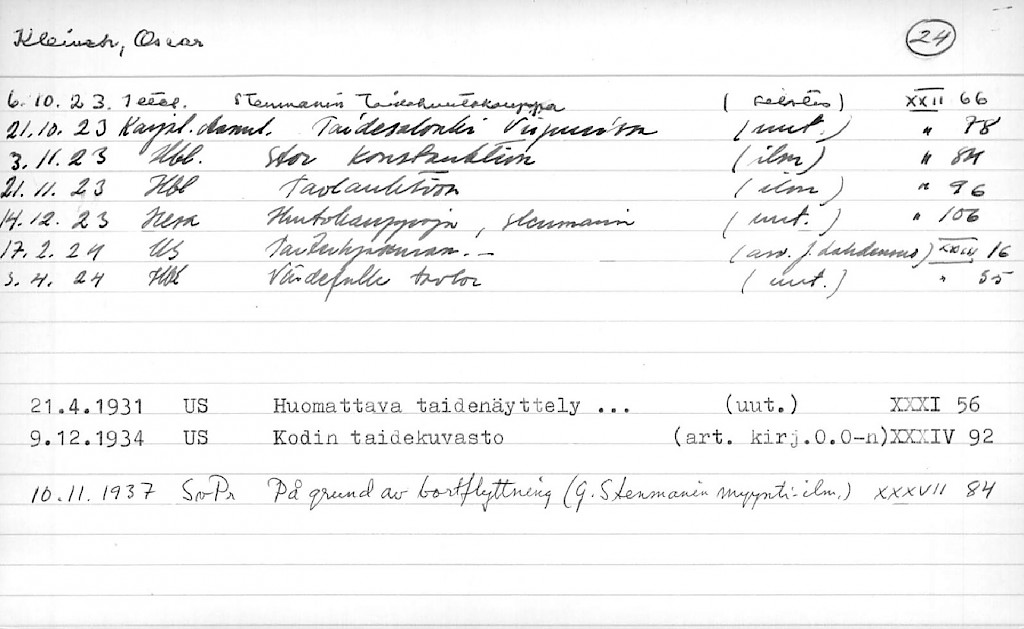 Kleineh, Oscar 24
6.10.23. Stenmanin Taidehuutokauppa (selostus) XXII 66
21.10.23 Karjal. Taidesalonki Viipurissa (uut.) " 78
3.11.23 Hbl. Stor konstauktion (ilm) " 84
21.11.23 Hbl Tavlauktion (ilm) " 96
14.12.23 Huutokauppoja, Stenmanin (uut.) " 106
17.2.24 US (arv. J. Lahdenoino) XXIII 16
3.4.24 Hbl Värdefulla tavlor (uut.) " 55
21.4.1931 US Huomattava taidenäyttely ... (uut.) XXXI 56
9.12.1934 US Kodin taidekuvasto (art. kirj.O.O-n)XXXIV 92
10.11.1937 SvPr På grund av bortflyttning (G. Stenmanin myynti-ilm.) XXXVII 84